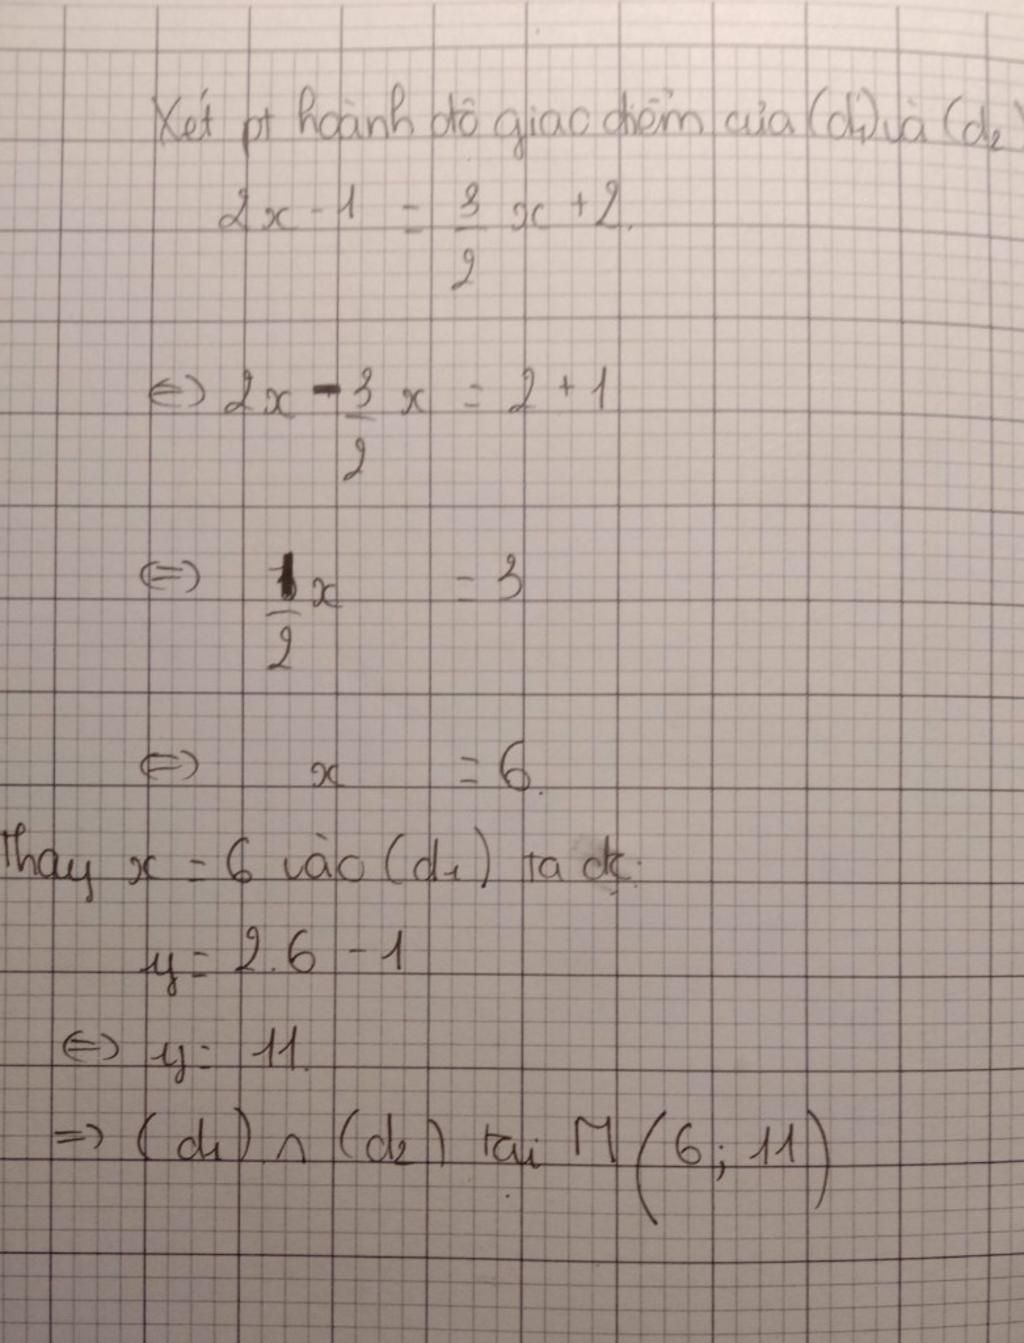 Xét pt hoành độ giao điểm của (d₁) và (d₂)
2x - 1 = 3/2 x + 2.
⇔ 2x - 3/2 x = 2 + 1
⇔ 1/2 x = 3
⇔ x = 6.
Thay x = 6 vào (d₁) ta đc:
y = 2.6 - 1
⇔ y = 11.
⇒ (d₁) ∩ (d₂) tại M (6; 11)